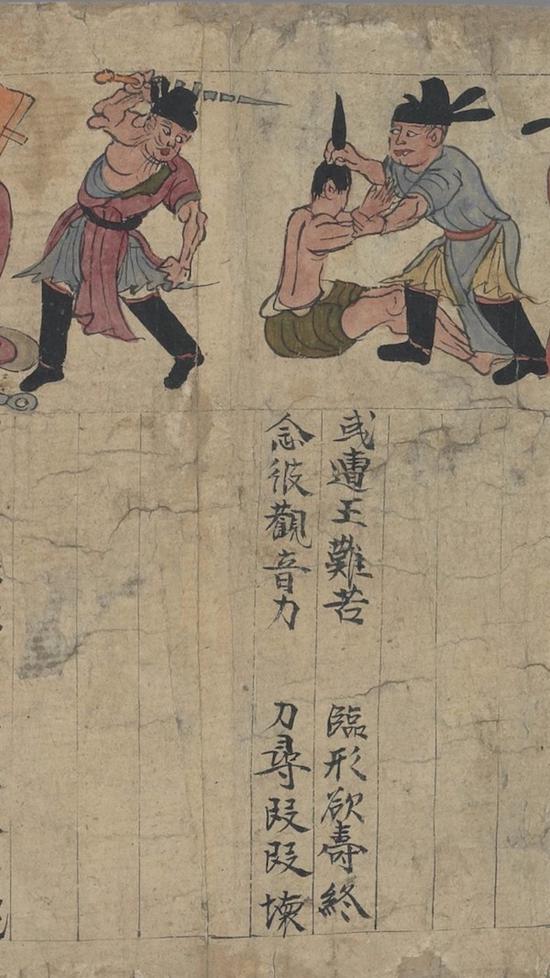 或遭王難苦　臨形欲壽終
念彼觀音力　刀尋段段壞